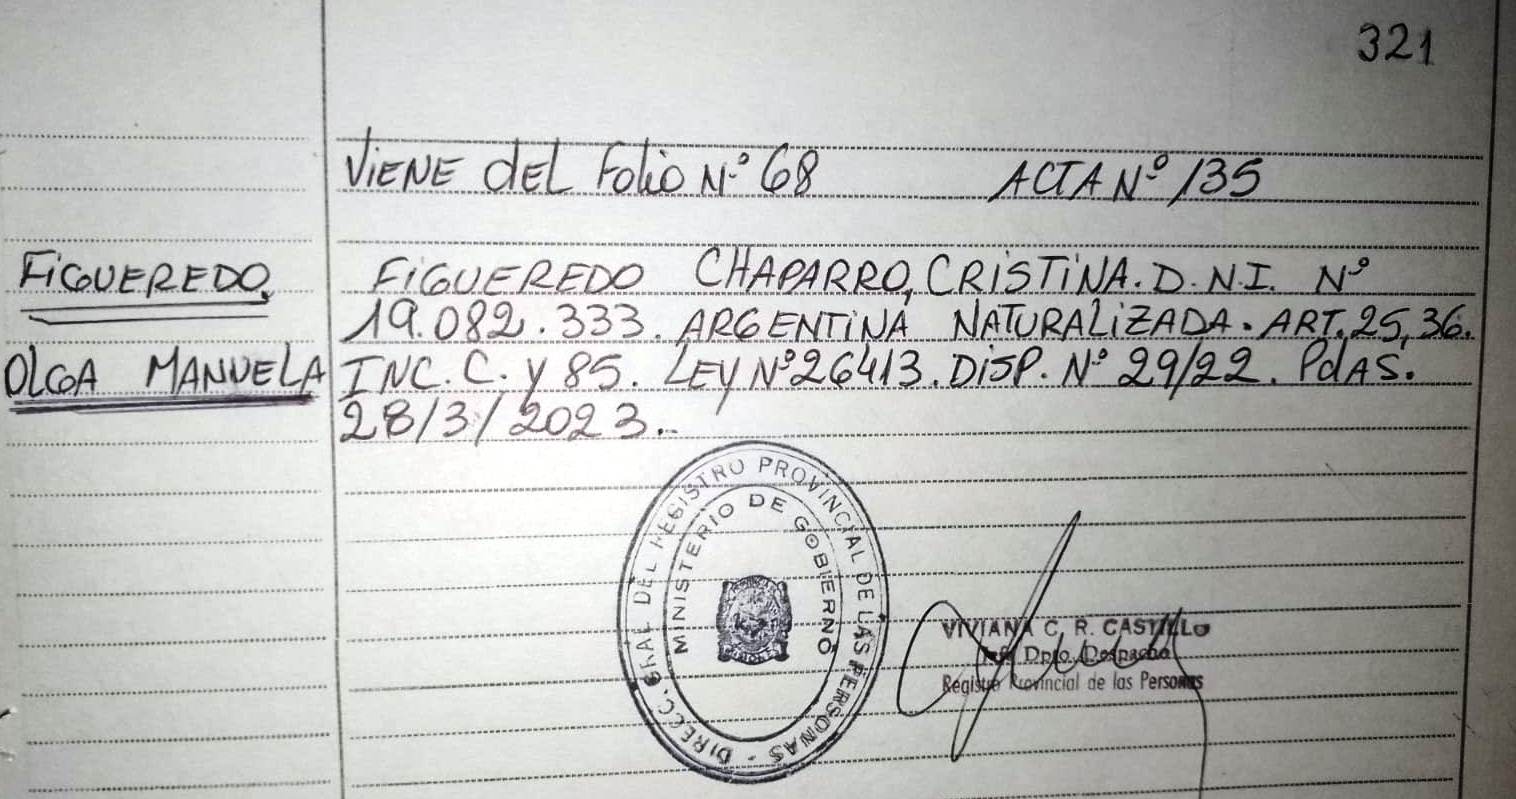 321
VIENE DEL Folio Nº 68 ACTA Nº 135
FIGUEREDO,
OLGA MANUELA
FIGUEREDO CHAPARRO, CRISTINA. D.N.I. Nº
19.082.333. ARGENTINA NATURALIZADA. ART. 25, 36.
INC. C. Y 85. LEY Nº 26413. DISP. Nº 29/22. PdAS.
28/3/2023.-
DIRECC. GRAL DEL REGISTRO PROVINCIAL DE LAS PERSONAS -
MINISTERIO DE GOBIERNO
VIVIANA C. R. CASTILLO
Jefe Dpto. Despacho
Registro Provincial de las Personas